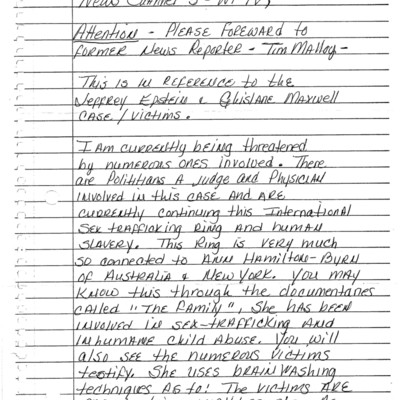 News Channel 5 - WPTV,
Attention - Please Foreward to
former News Reporter - Tim Malloy -
This is in reference to the
Jeffrey Epstein & Ghislane Maxwell
case/victims.
I am currently being threatened
by numerous ones involved. There
are Polititians A Judge and Physician
involved in this case and are
currently continuing this International
Sex trafficking ring and human
slavery. This Ring is very much
so connected to Ann Hamilton-Byrn
of Australia & New York. You may
know this through the documentaries
called "The Family", She has been
involved in sex-trafficking and
inhumane child abuse. You will
also see the numerous victims
testify. She uses brain washing
techniques as to! The victims are